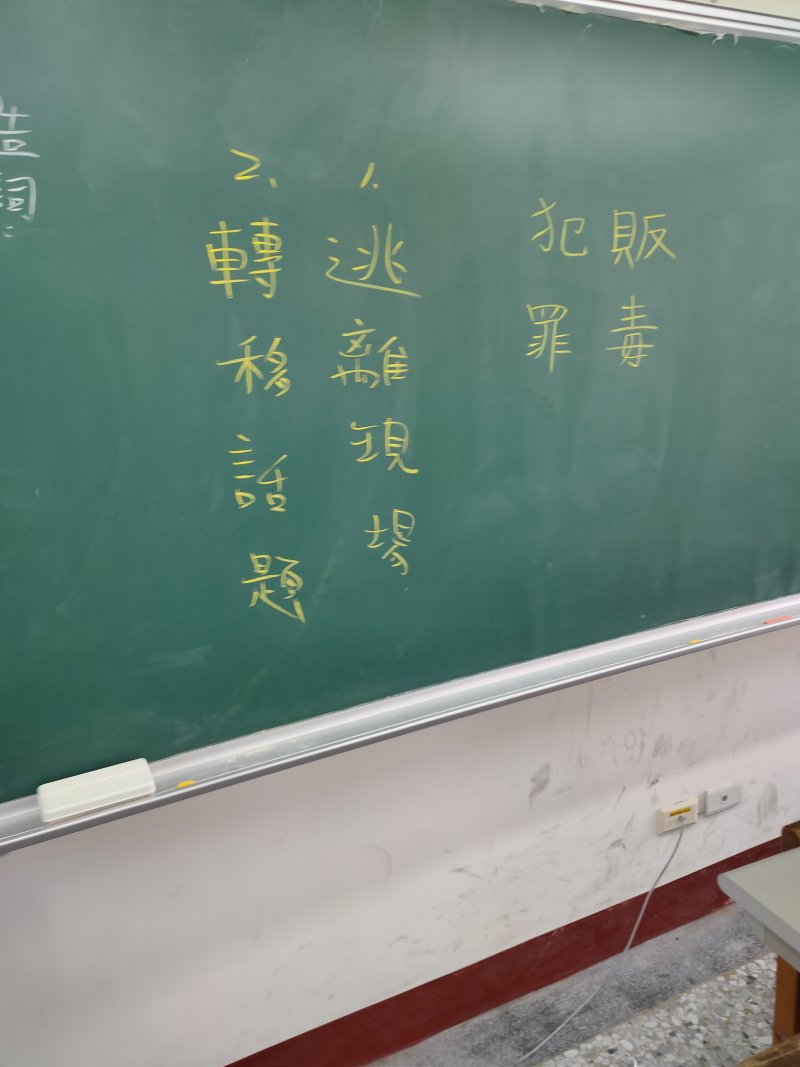 販毒
犯罪
1. 逃離現場
2. 轉移話題
造詞：